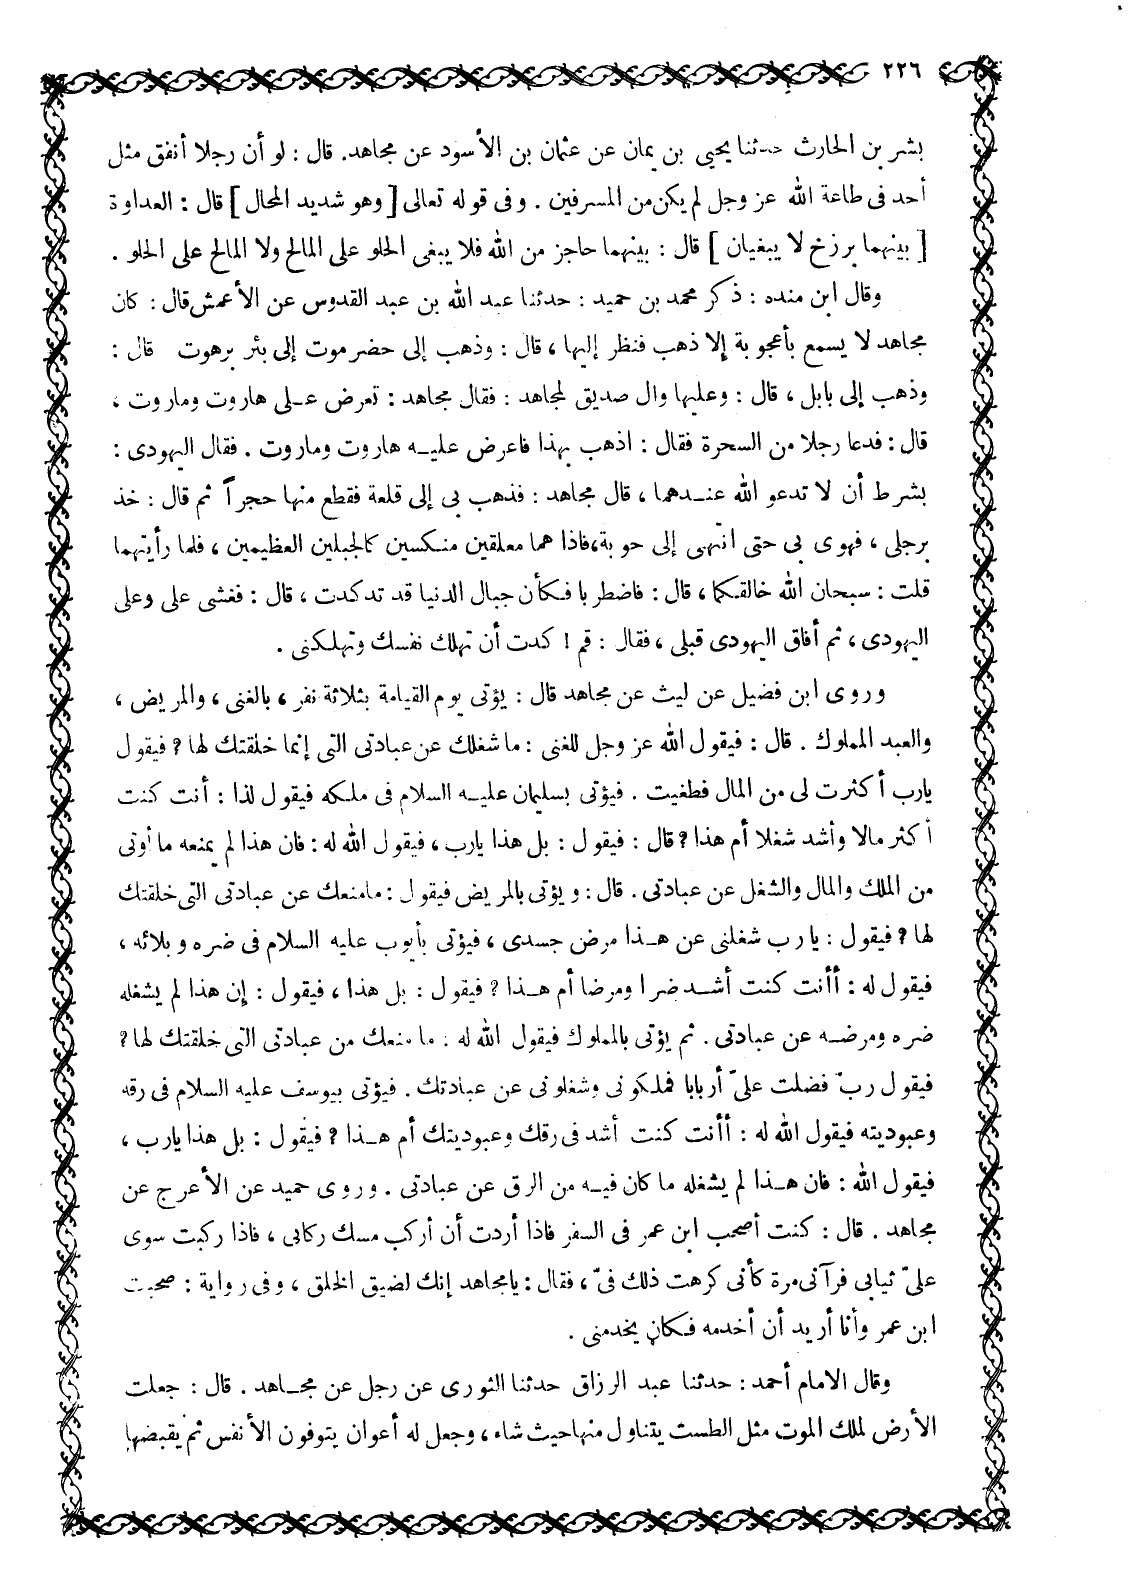 ٢٢٦
بشر بن الحارث حدثنا يحيى بن يمان عن عثمان بن الأسود عن مجاهد. قال : لو أن رجلا أنفق مثل
أحد فى طاعة الله عز وجل لم يكن من المسرفين . وفى قوله تعالى [ وهو شديد المحال ] قال : العداوة
[ بينهما برزخ لا يبغيان ] قال : بينهما حاجز من الله فلا يبغى الحلو على المالح ولا المالح على الحلو .
وقال ابن منده : ذكر محمد بن حميد : حدثنا عبد الله بن عبد القدوس عن الأعمش قال : كان
مجاهد لا يسمع بأعجوبة إلا ذهب فنظر إليها ، قال : وذهب إلى حضرموت إلى بئر برهوت قال :
وذهب إلى بابل ، قال : وعليها وال صديق لمجاهد : فقال مجاهد : تعرض على هاروت وماروت ،
قال : فدعا رجلا من السحرة فقال : اذهب بهذا فاعرض عليه هاروت وماروت . فقال اليهودى :
بشرط أن لا تدعو الله عندهما ، قال مجاهد : فذهب بى إلى قلعة فقطع منها حجراً ثم قال : خذ
برجلى ، فهوى بى حتى انتهى إلى حوبة ، فاذا هما معلقين منكسين كالجبلين العظيمين ، فلما رأيتهما
قلت : سبحان الله خالقكما ، قال : فاضطربا فكأن جبال الدنيا قد تدكدت ، قال : فغشى على وعلى
اليهودى ، ثم أفاق اليهودى قبلى ، فقال : قم ! كدت أن تهلك نفسك وتهلكنى .
وروى ابن فضيل عن ليث عن مجاهد قال : يؤتى يوم القيامة بثلاثة نفر ، بالغنى ، والمريض ،
والعبد المملوك . قال : فيقول الله عز وجل للغنى : ما شغلك عن عبادتى التى إنما خلقتك لها ؟ فيقول
يارب أكثرت لى من المال فطغيت . فيؤتى بسليمان عليه السلام فى ملكه فيقول لذا : أنت كنت
أكثر مالا وأشد شغلا أم هذا ؟ قال : فيقول : بل هذا يارب ، فيقول الله له : فان هذا لم يمنعه ما أوتى
من الملك والمال والشغل عن عبادتى . قال : ويؤتى بالمريض فيقول : مامنعك عن عبادتى التى خلقتك
لها ؟ فيقول : يارب شغلنى عن هذا مرض جسدى ، فيؤتى بأيوب عليه السلام فى ضره وبلائه ،
فيقول له : أأنت كنت أشد ضرا ومرضا أم هذا ؟ فيقول : بل هذا ، فيقول : إن هذا لم يشغله
ضره ومرضه عن عبادتى . ثم يؤتى بالمملوك فيقول الله له : ما منعك من عبادتى التى خلقتك لها ؟
فيقول ربّ فضلت علىّ أربابا فملكونى وشغلونى عن عبادتك . فيؤتى بيوسف عليه السلام فى رقه
وعبوديته فيقول الله له : أأنت كنت أشد فى رقك وعبوديتك أم هذا ؟ فيقول : بل هذا يارب ،
فيقول الله : فان هذا لم يشغله ما كان فيه من الرق عن عبادتى . وروى حميد عن الأعرج عن
مجاهد . قال : كنت أصحب ابن عمر فى السفر فاذا أردت أن أركب مسك ركابى ، فاذا ركبت سوى
علىّ ثيابى فرآنى مرة كأنى كرهت ذلك فىّ ، فقال : يامجاهد إنك لضيق الخلق ، وفى رواية : صحبت
ابن عمر وأنا أريد أن أخدمه فكان يخدمنى .
وقال الامام أحمد : حدثنا عبد الرزاق حدثنا الثورى عن رجل عن مجاهد . قال : جعلت
الأرض لملك الموت مثل الطست يتناول منها حيث شاء ، وجعل له أعوان يتوفون الأنفس ثم يقبضها